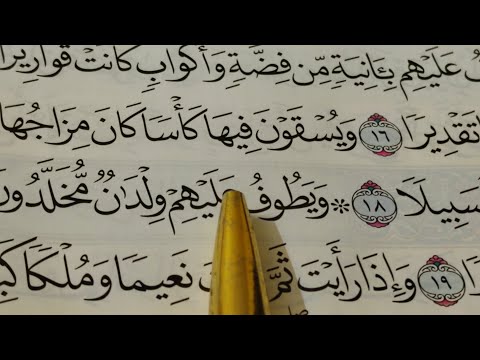 عَلَيْهِم بِـَٔانِيَةٍ مِّن فِضَّةٍ وَأَكْوَابٍ كَانَتْ قَوَارِيرَا۠
تَقْدِيرًا ١٦ وَيُسْقَوْنَ فِيهَا كَأْسًا كَانَ مِزَاجُهَا
سَبِيلًا ١٨ ۞ وَيَطُوفُ عَلَيْهِمْ وِلْدَٰنٌ مُّخَلَّدُونَ
ا ١٩ وَإِذَا رَأَيْتَ ثَمَّ نَعِيمًا وَمُلْكًا